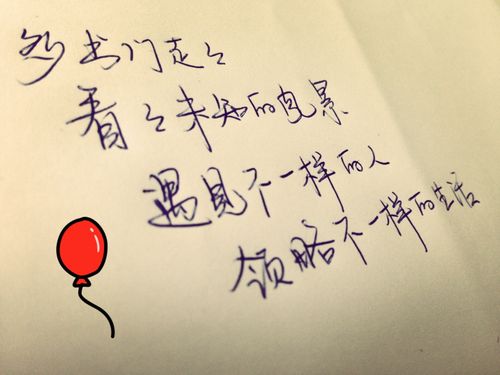 多出门走走
看看未知的光景
遇见不一样的人
领略不一样的生活